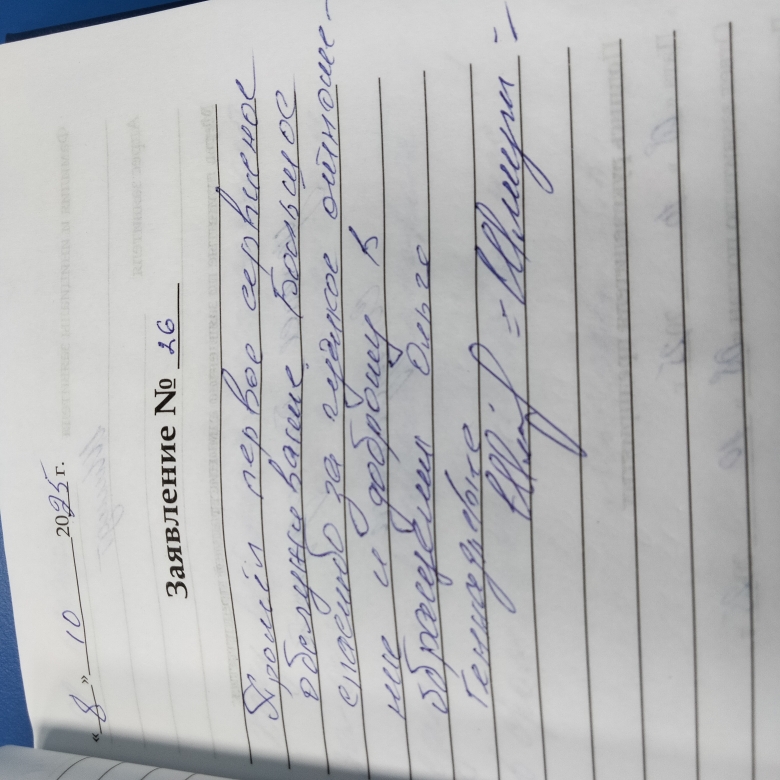 « 8 » 10 2025 г.
Заявление № 26
Прошёл первое сервисное
обслуживание. Большое
спасибо за чуткое отноше-
ние и доброту в
обращении Ольге
Геннадьевне